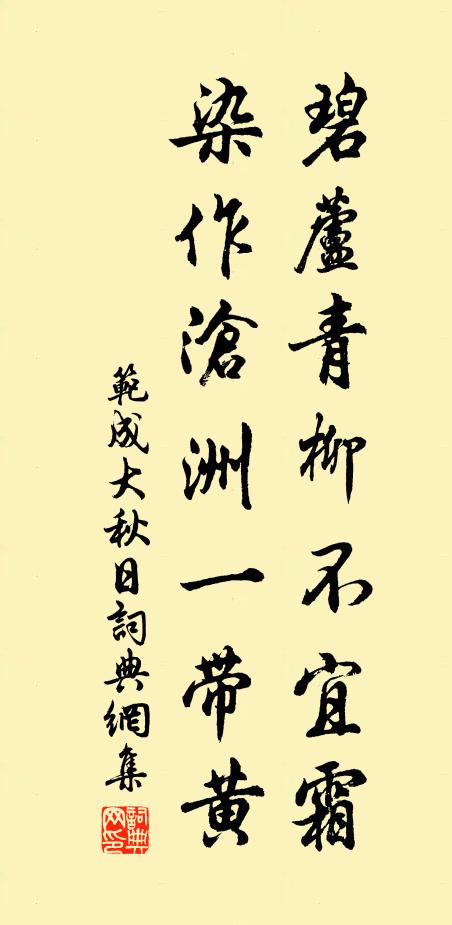 碧蘆青柳不宜霜
染作滄洲一帶黃
範成大秋日詞典網集
詞典网印